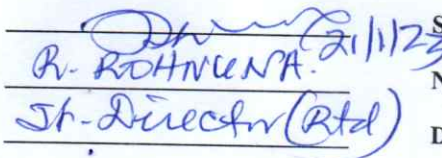 21/1/23 S
R. ROHNUNA. N
Jt. Director (Rtd) D